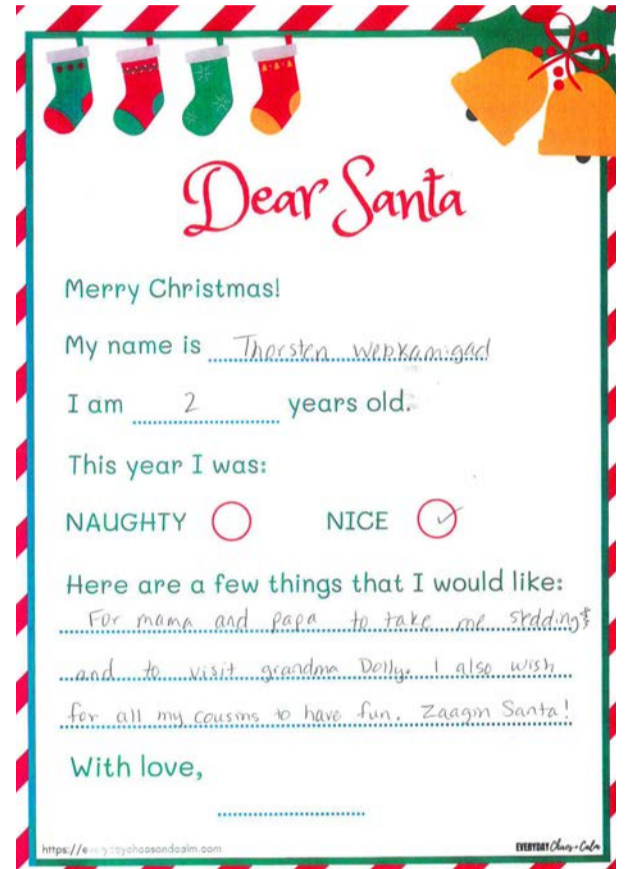 Dear Santa
Merry Christmas!
My name is Thorsten Webkamigad
I am 2 years old.
This year I was:
NAUGHTY NICE
Here are a few things that I would like:
For mama and papa to take me sledding
and to visit grandma Dolly. I also wish
for all my cousins to have fun. Zaagin Santa!
With love,
EVERYDAY Chaos + Calm